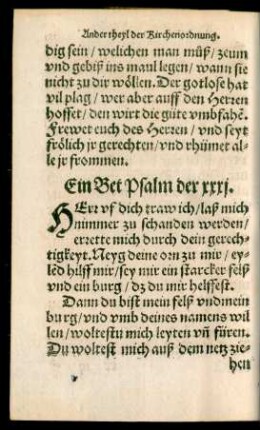 Ander theyl der Kirchenordnung.
dig sein / welichen man müß / zeum
vnd gebiß ins maul legen / wann sie
nicht zu dir wöllen. Der gotlose hat
vil plag / wer aber auff den Herren
hoffet / den wirt die güte vmbfahē.
Frewet euch des Herren / vnd seyt
frölich jr gerechten / vnd rhümet al-
le jr frommen.
Ein Bet Psalm der xxxj.
HErr vf dich traw ich / laß mich
nimmer zu schanden werden /
errette mich durch dein gerech-
tigkeyt. Neyg deine orn zu mir / ey-
lēd hilff mir / sey mir ein starcker felß
vnd ein burg / dz du mir helffest.
Dann du bist mein felß vnd mein
burg / vnd vmb deines namens wil
len / woltestu mich leyten vñ füren.
Du woltest mich auß dem netz zie-
hen